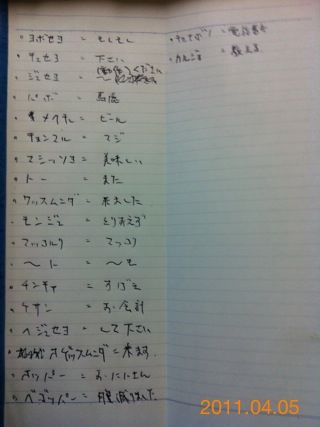 ・ヨボセヨ = もしもし
・チュセヨ = 下さい
・ジュセヨ = 〜
・パボ = 馬鹿
・メクチュ = ビール
・チョンマル = マジ
・マシッソヨ = 美味しい
・トー = また
・ワッスムニダ = 来ました
・モンジョ = とりあえず
・マッコルリ = マッコリ
・〜ド = 〜も
・チンチャ = すげえ
・ケサン = お会計
・ヘジュセヨ = して下さい
オゲッスムニダ = 来ます
・オッパー = おにいさん
・ベゴッパー = 腹減りました
= 電話番号
= 教える
2011.04.05